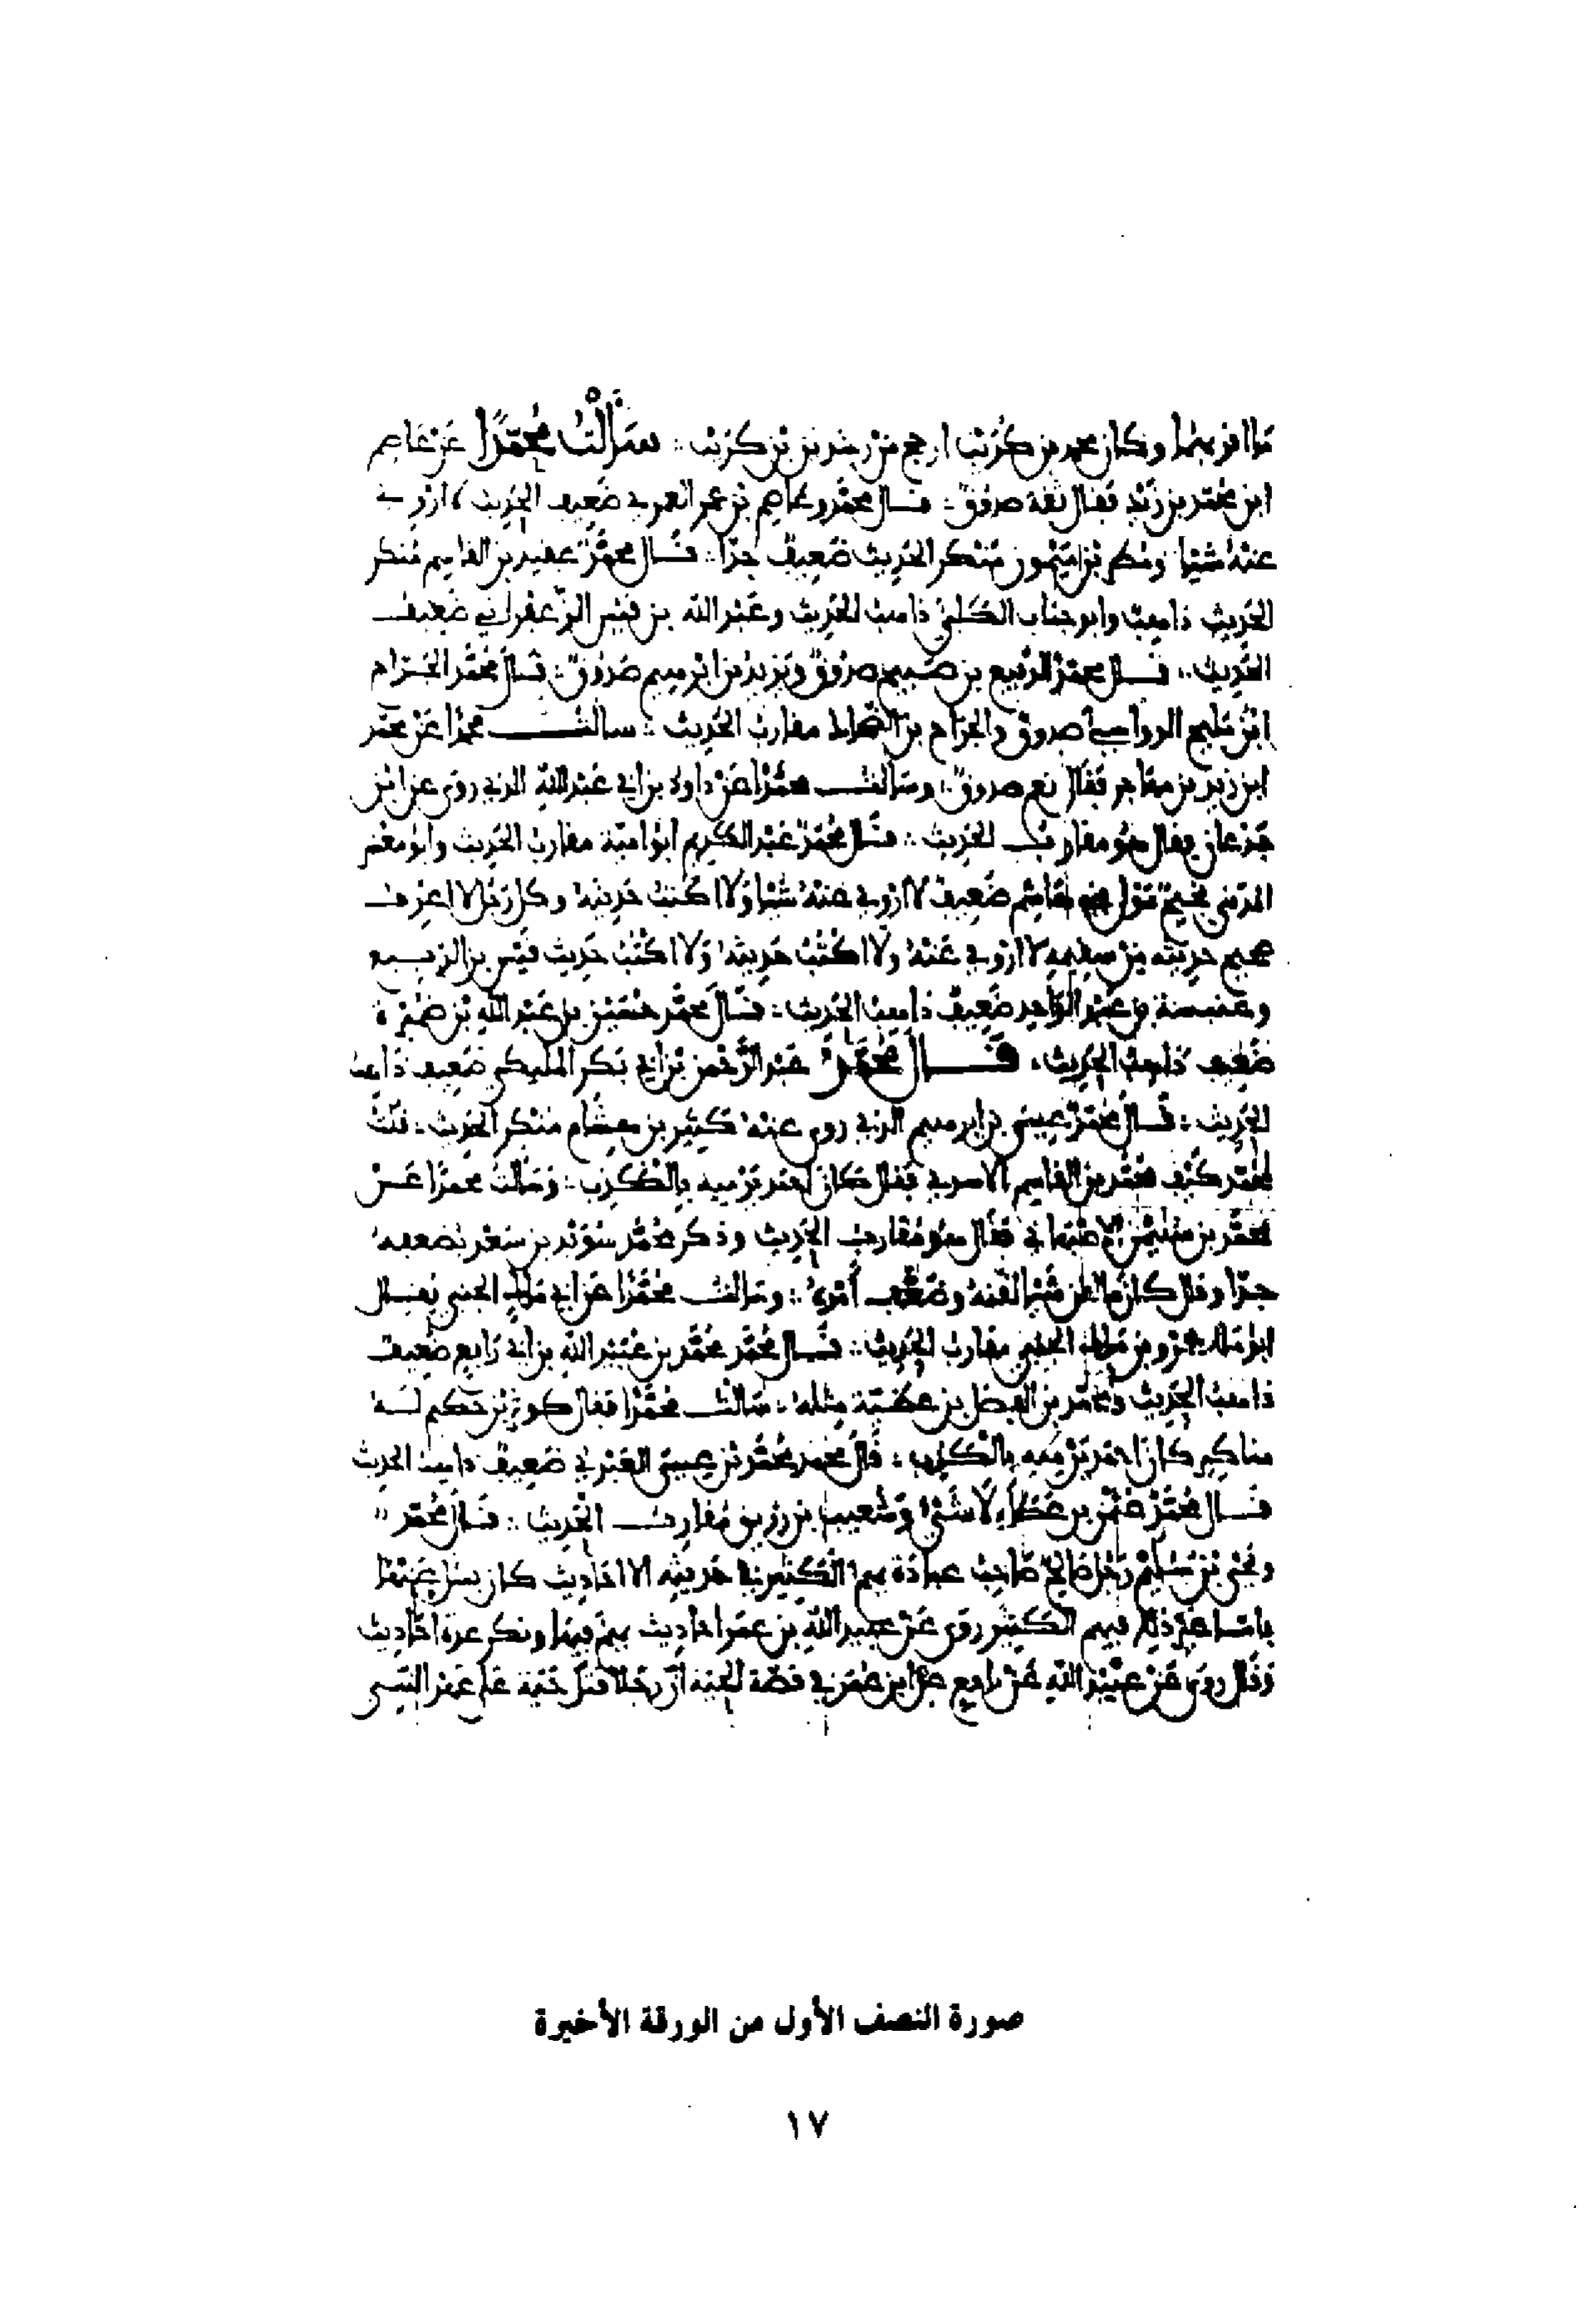 ما اقربهما وكان محمد بن كريب ارجح من رشدين بن كريب ∴ سَأَلْتُ مُحَمَّدًا عَن عَاصم
ابن محمد بن زيد فقال ثقة صدوق ∴ قال محمد وعاصم بن عمر العمري ضعيف الحديث لا اروي
عنه شيئا وحكم بن ميمون منكر الحديث ضعيف جدا ∴ قال محمد عفير بن القاسم منكر
الحديث ذاهب وابو جناب الكلبي ذاهب الحديث وعبد الله بن قيس الزعفراني ضعيف
الحديث ∴ قال محمد الربيع بن صبيح صدوق ويزيد بن ابرهيم صدوق ∴ قال محمد الجراح
ابن مليح الرواسي صدوق والجراح بن الضحاك مقارب الحديث ∴ سالت محمدا عن محمد
ابن زيد بن مهاجر فقال نعم صدوق ∴ وسالت محمدا عن داود بن ابي عبد الله الذي روى عن ابن
جدعان فقال هو مقارب الحديث ∴ قال محمد عبد الكريم ابو امية مقارب الحديث وابو معشر
المدني نجيح مولى بني هاشم ضعيف لا اروي عنه شيئا ولا اكتب حديثه وكل رجل لا اعرف
صحيح حديثه من سقيمه لا اروي عنه ولا اكتب حديثه ولا اكتب حديث قيس بن الربيع
وعنبسة بن عبد الواحد ضعيف ذاهب الحديث ∴ قال محمد حسين بن عبد الله بن ضميرة
ضعيف ذاهب الحديث ∴ قَال مُحَمَّد عبد الرحمن بن ابي بكر المليكي ضعيف ذاهب
الحديث ∴ قال محمد عيسى بن ابرهيم الذي روى عنه كثير بن هشام منكر الحديث ∴ قلت
لمحمد كيف محمد بن القاسم الاسدي فقال كان احمد يرميه بالكذب ∴ وسالت محمدا عن
محمد بن سليمن الاصبهاني فقال هو مقارب الحديث وذكر محمد سويد بن سعيد فضعفه
جدا وقال كان ما لقن شيئا لقنه وضعف امره ∴ وسالت محمدا عن ابي مالك الجنبي فقال
ابو مالك عمرو بن مالك الجنبي مقارب الحديث ∴ قال محمد محمد بن عبيد الله بن ابي رافع ضعيف
ذاهب الحديث ومحمد بن الفضل بن عطية مثله ∴ سالت محمدا فقال كوثر بن حكيم له
مناكير كان احمد يرميه بالكذب ∴ قال محمد محمد بن عيسى العبدي ضعيف ذاهب الحديث
قال محمد عثمن بن عطاء لا شيء وشعيب بن رزيق مقارب الحديث ∴ قال محمد
ويحيى بن سليم رجل صالح صاحب عبادة يهم الكثير في حديثه الا احاديث كان يسئل عنها
فاما غير ذلك فيهم الكثير روى عن عبيد الله بن عمر احاديث يهم فيها وذكر عدة احاديث
وقال روى عن عبيد الله عن نافع عن ابن عمر في قصة الحية ان رجلا قتل حية على عهد النبي
صورة النصف الأول من الورقة الأخيرة
١٧